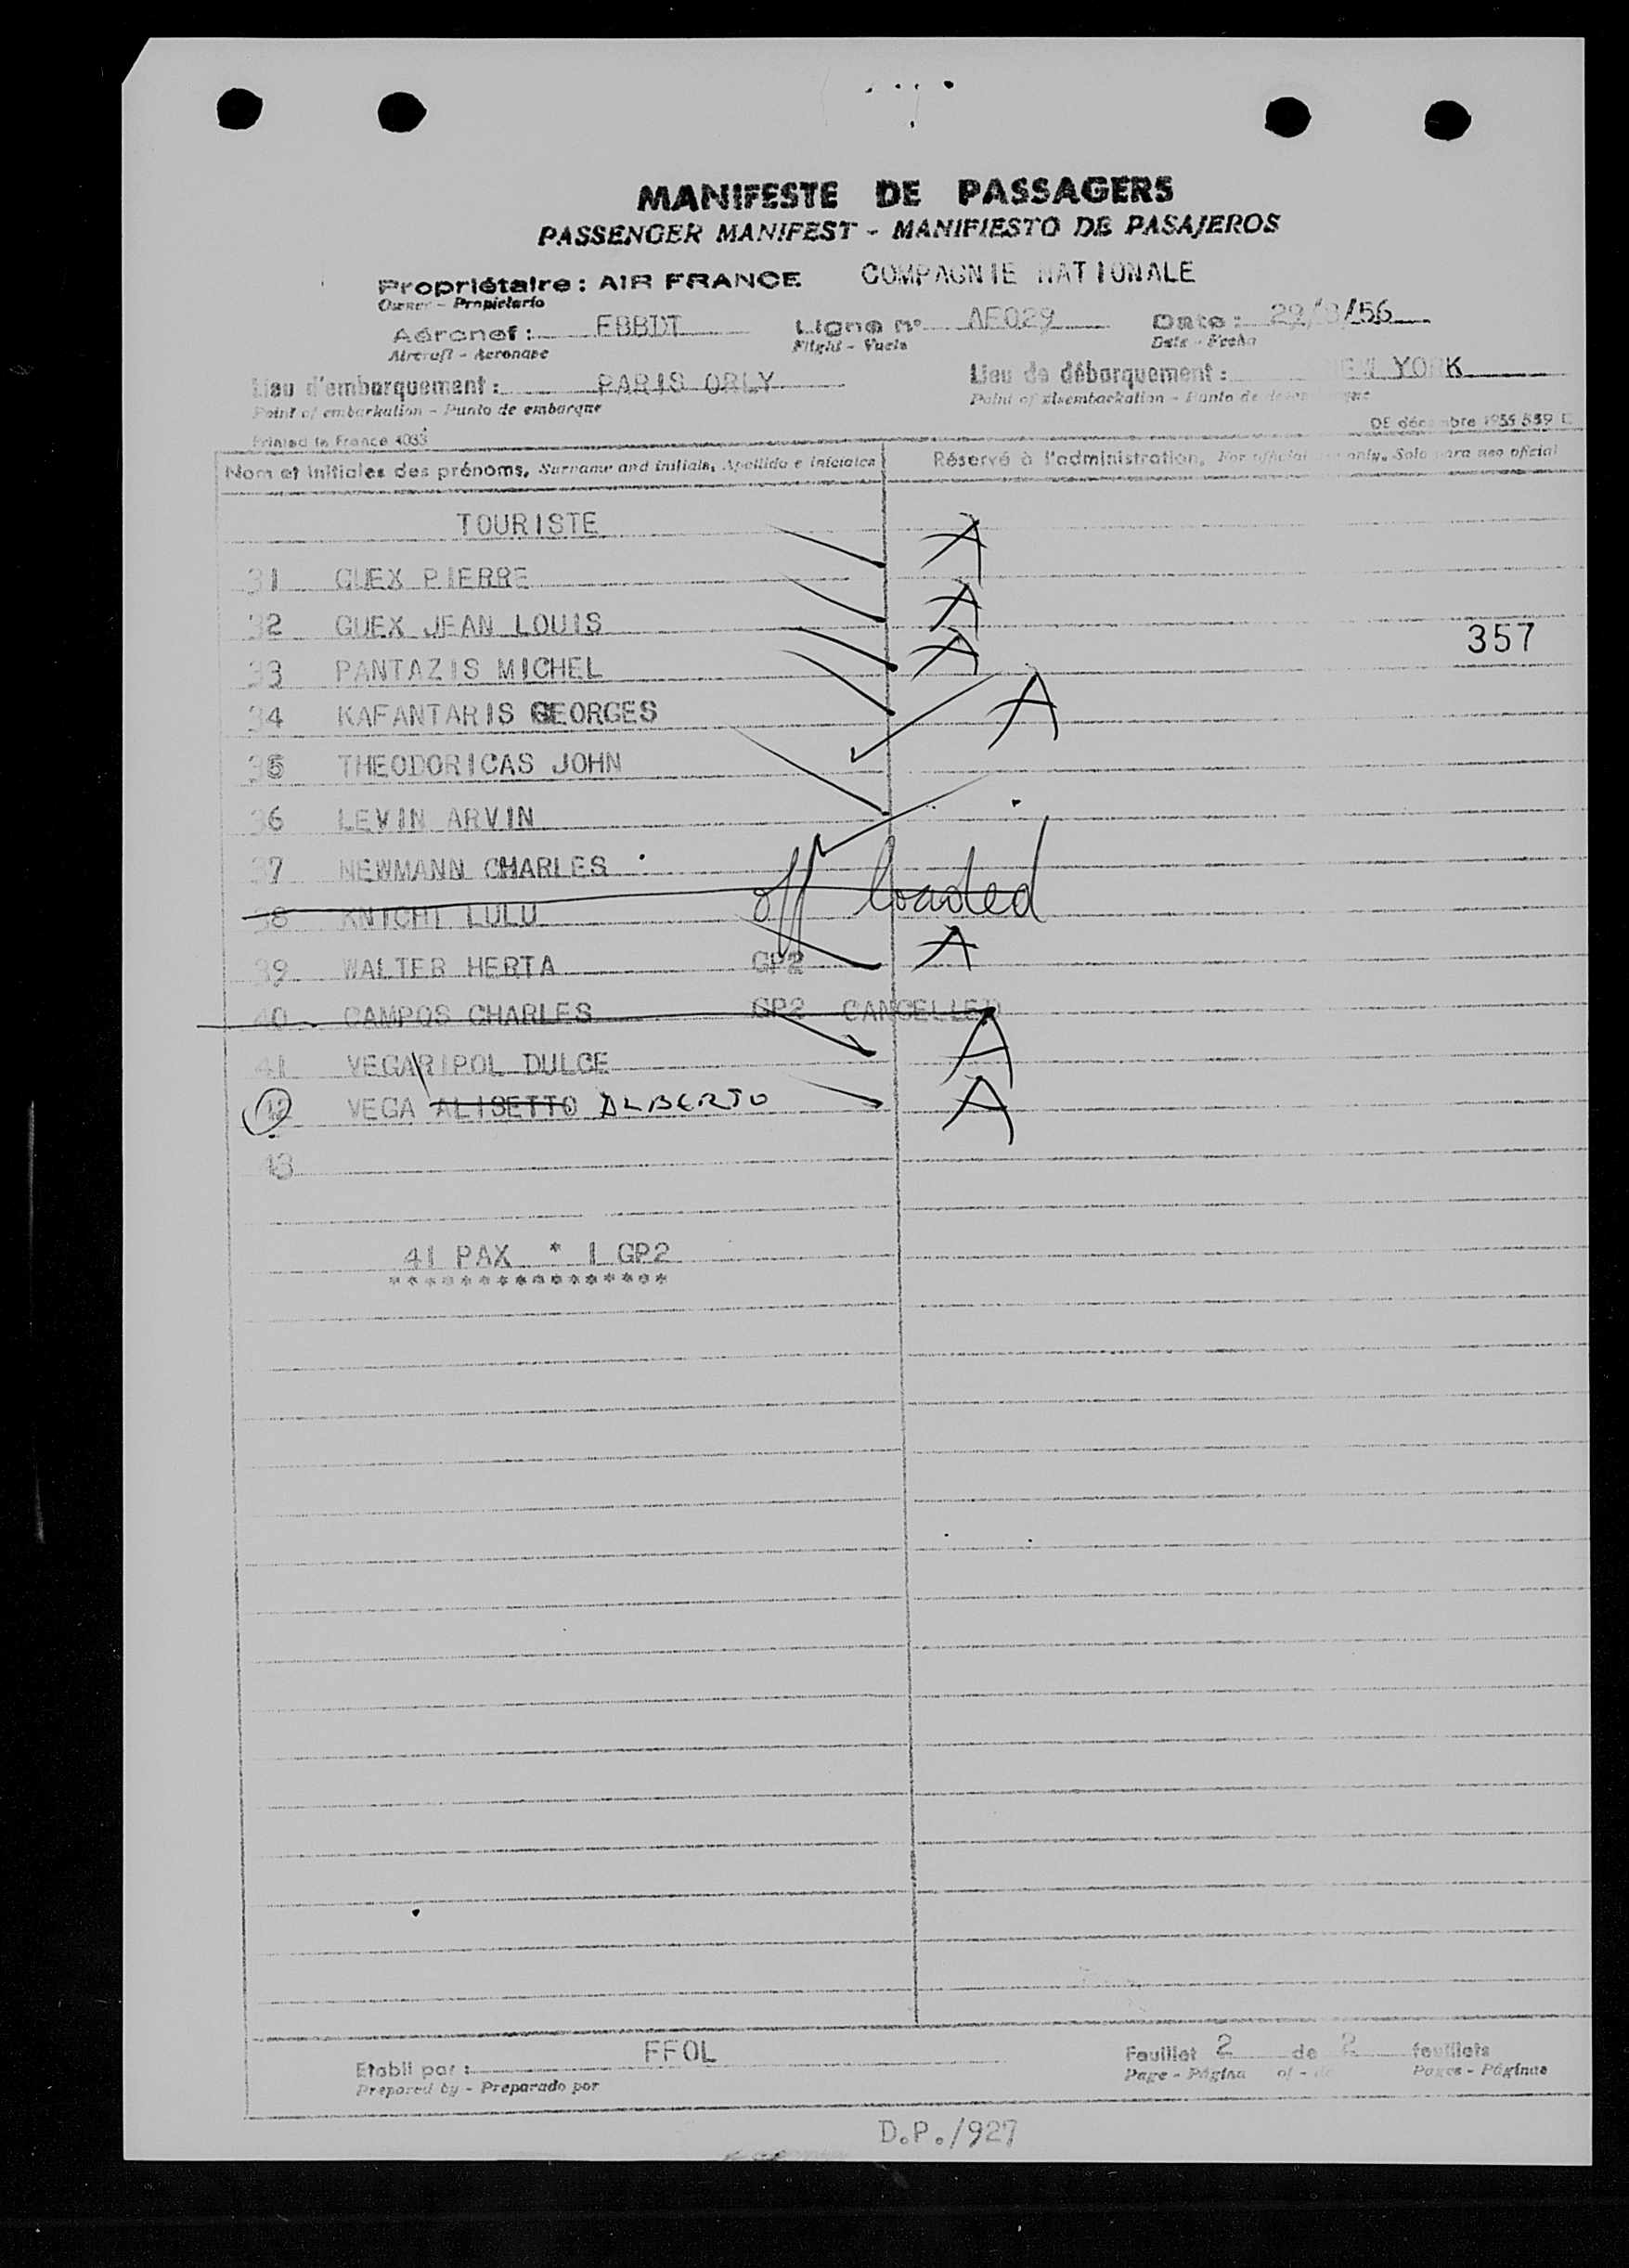 MANIFESTE DE PASSAGERS
PASSENGER MANIFEST - MANIFIESTO DE PASAJEROS
Propriétaire : AIR FRANCE COMPAGNIE NATIONALE
Owner - Propietario
Aéronef : FBBDT Ligne n° AF029 Date : 29/ /56
Aircraft - Aeronave Flight - Vuelo Date - Fecha
Lieu d'embarquement : PARIS ORLY Lieu de débarquement : NEW YORK
Point of embarkation - Punto de embarque Point of disembarkation - Punto de
Printed in France 4033 DE décembre 1955 559 C
Nom et initiales des prénoms, Surname and initials, Apellido e iniciales Réservé à l'administration, For official use only. Solo para uso oficial
TOURISTE
31 GUEX PIERRE A
32 GUEX JEAN LOUIS A
357
33 PANTAZIS MICHEL A
34 KAFANTARIS GEORGES A
35 THEODORICAS JOHN
36 LEVIN ARVIN
37 NEWMANN CHARLES
38 KNIGHT LULU off loaded
39 WALTER HERTA GP2 A
40 CAMPOS CHARLES GP2 CANCELLED
41 VEGA RIPOL DULCE A
42 VEGA ALISETTO ALBERTO A
43
41 PAX * 1 GP2
****************
Etabli par : FFOL Feuillet 2 de 2 feuillets
Prepared by - Preparado por Page - Página of - de Pages - Páginas
D.P./927